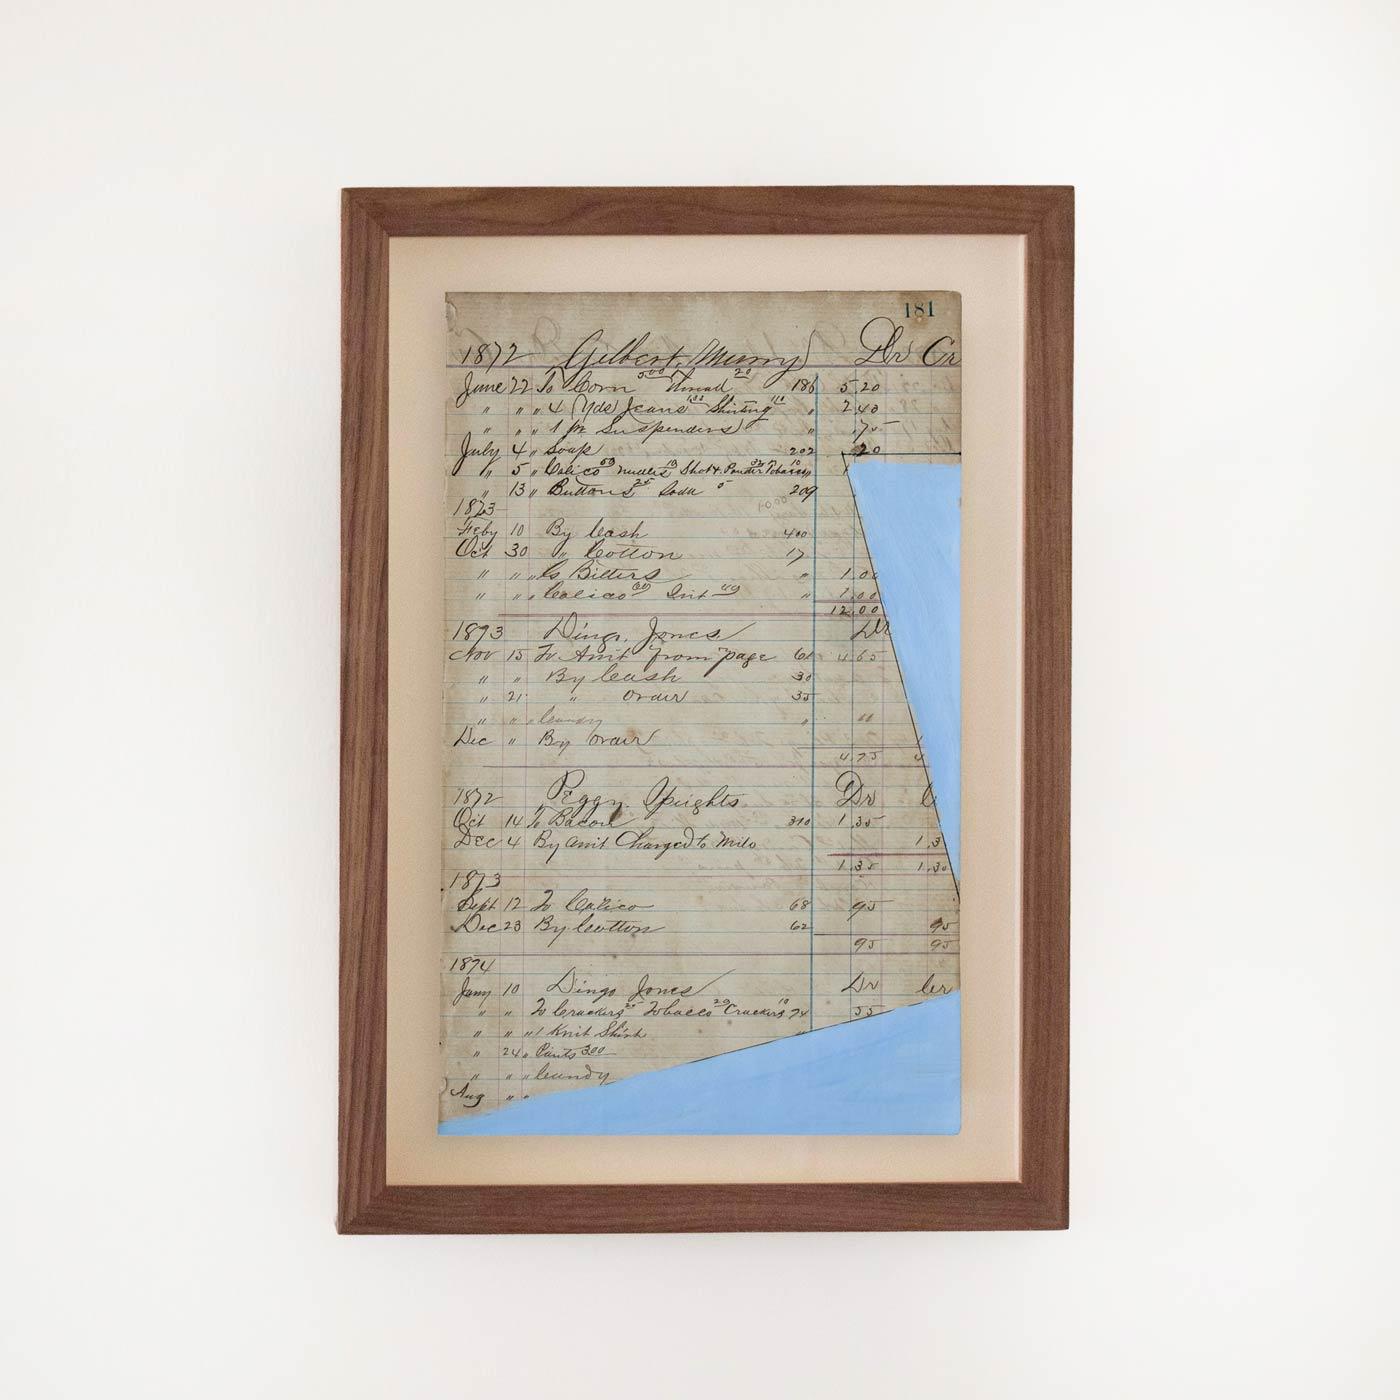 181
1872 Gilbert Murry Dr Cr
June 22 To Corn 5.00 Thread 20 186 5.20
" " " 4 Yds Jeans Shirting " 2.40
" " " 1 pr Suspenders " .75
July 4 " Soap 202 20
" 5 " Calico Shot & Powder Tobacco 10 "
" 13 " Buttons 25 Soda 5 209
1873
Feby 10 By Cash 400
Oct 30 " Cotton 17
" " " Bitters " 1.00
" " " Calico " 1.00
12.00
1873 Dingo Jones Dr
Nov 15 To Amt from page 61 4.65
" " By Cash 30
" 21 " Order 35
" " " Candy " "
Dec " By Order
4.75 4
1872 Peggy Speights Dr C
Oct 14 To Bacon 310 1.35
Dec 4 By Amt Charged to Milo 1.3
1.35 1.30
1873
Sept 12 To Calico 68 95
Dec 23 By Cotton 62 95
95 95
1874
Jany 10 Dingo Jones Dr Cr
" " To Crackers 25 Tobacco 20 Crackers 10 74 55
" " " 1 Knit Shirt "
" 24 " Pants 3.00
" " " Candy
Aug " "